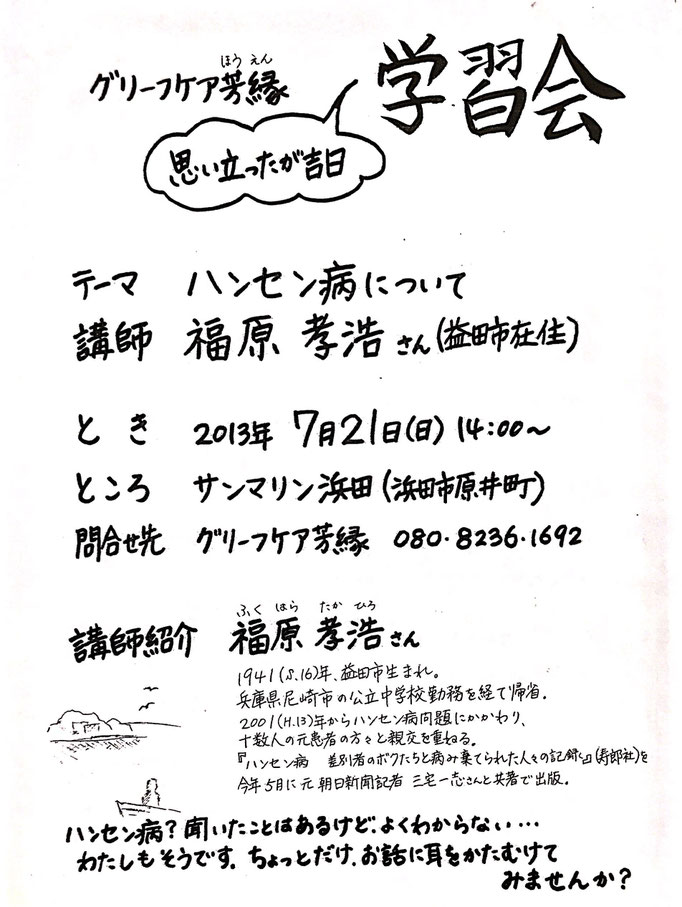 グリーフケア芳縁
ほうえん
学習会
思い立ったが吉日
テーマ ハンセン病について
講師 福原 孝浩さん(益田市在住)
とき 2013年 7月21日(日) 14:00〜
ところ サンマリン浜田(浜田市原井町)
問合せ先 グリーフケア芳縁 080・8236・1692
ふく はら たか ひろ
講師紹介 福原 孝浩さん
1941(S.16)年、益田市生まれ。
兵庫県尼崎市の公立中学校勤務を経て帰省。
2001(H.13)年からハンセン病問題にかかわり、
十数人の元患者の方々と親交を重ねる。
『ハンセン病 差別者のボクたちと病み棄てられた人々の記録』(寿郎社)を
今年5月に元朝日新聞記者 三宅一志さんと共著で出版。
ハンセン病?聞いたことはあるけど、よくわからない…
わたしもそうです。ちょっとだけ、お話に耳をかたむけて
みませんか?